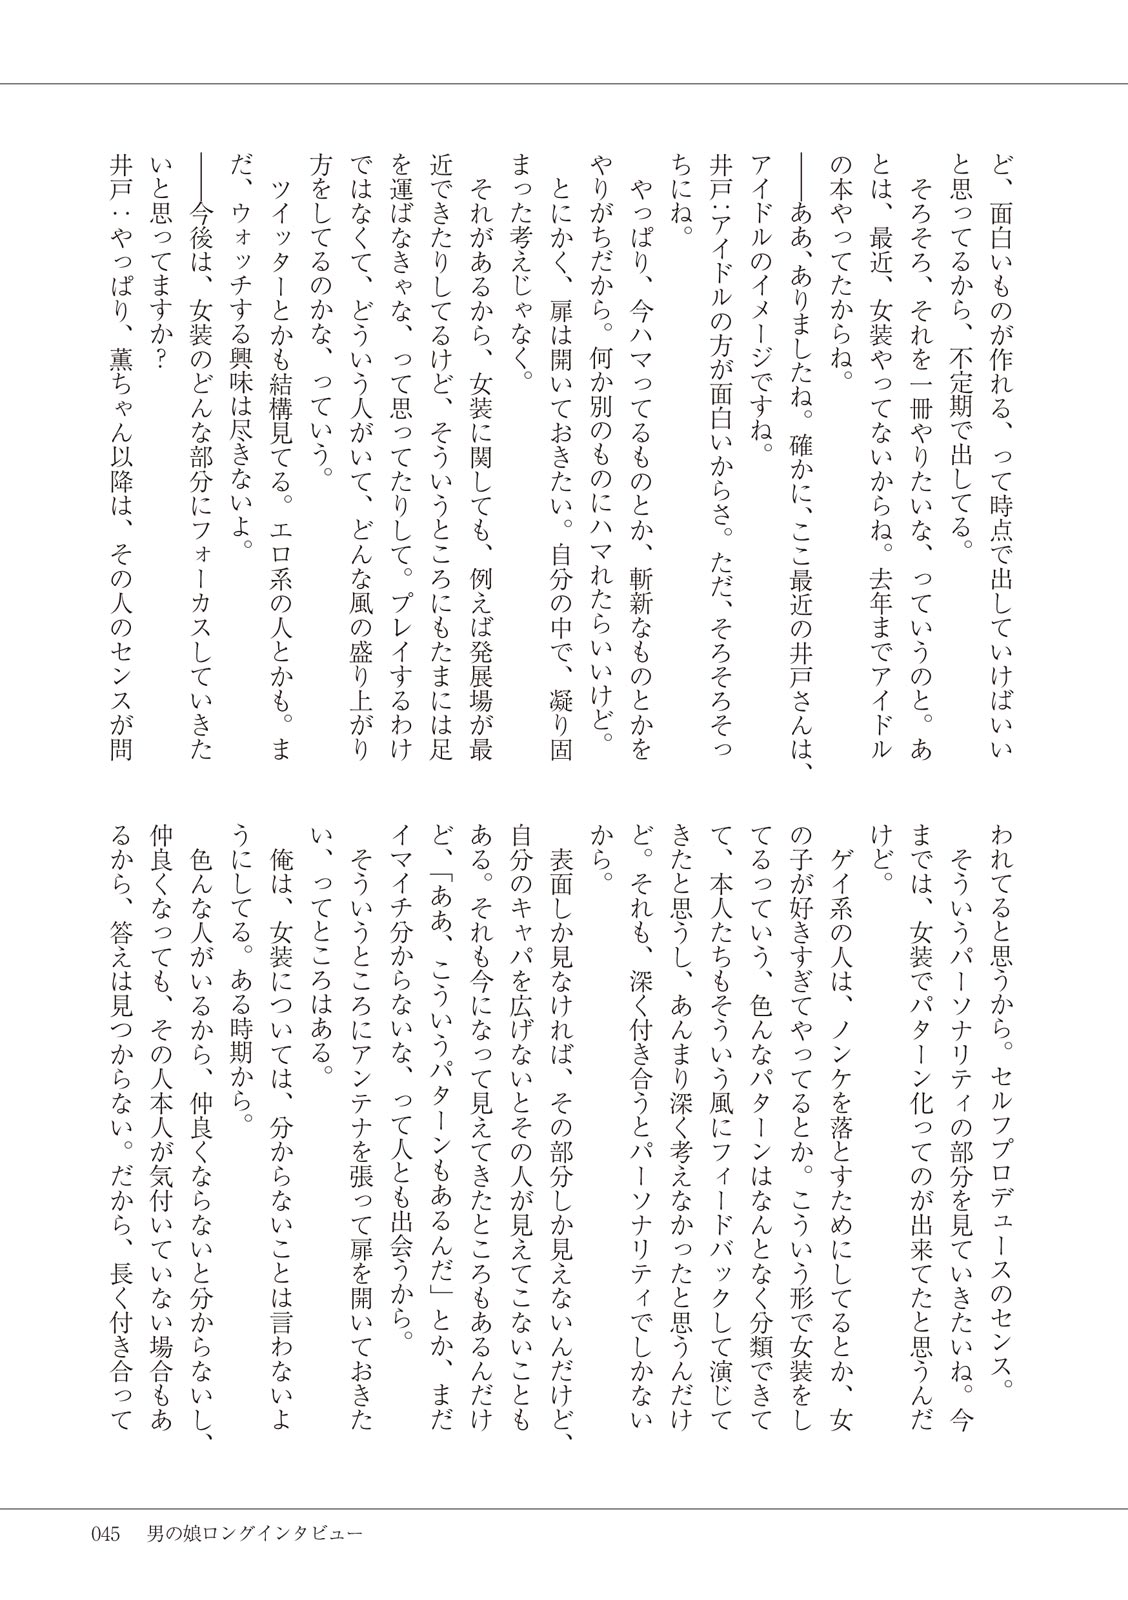 ど、面白いものが作れる、って時点で出していけばいい
と思ってるから、不定期で出してる。
　そろそろ、それを一冊やりたいな、っていうのと。あ
とは、最近、女装やってないからね。去年までアイドル
の本やってたからね。
――ああ、ありましたね。確かに、ここ最近の井戸さんは、
アイドルのイメージですね。
井戸：アイドルの方が面白いからさ。ただ、そろそろそっ
ちにね。
　やっぱり、今ハマってるものとか、斬新なものとかを
やりがちだから。何か別のものにハマれたらいいけど。
　とにかく、扉は開いておきたい。自分の中で、凝り固
まった考えじゃなく。
　それがあるから、女装に関しても、例えば発展場が最
近できたりしてるけど、そういうところにもたまには足
を運ばなきゃな、って思ってたりして。プレイするわけ
ではなくて、どういう人がいて、どんな風の盛り上がり
方をしてるのかな、っていう。
　ツイッターとかも結構見てる。エロ系の人とかも。ま
だ、ウォッチする興味は尽きないよ。
――今後は、女装のどんな部分にフォーカスしていきた
いと思ってますか？
井戸：やっぱり、薫ちゃん以降は、その人のセンスが問
われてると思うから。セルフプロデュースのセンス。
　そういうパーソナリティの部分を見ていきたいね。今
までは、女装でパターン化ってのが出来てたと思うんだ
けど。
　ゲイ系の人は、ノンケを落とすためにしてるとか、女
の子が好きすぎてやってるとか。こういう形で女装をし
てるっていう、色んなパターンはなんとなく分類できて
て、本人たちもそういう風にフィードバックして演じて
きたと思うし、あんまり深く考えなかったと思うんだけ
ど。それも、深く付き合うとパーソナリティでしかない
から。
　表面しか見なければ、その部分しか見えないんだけど、
自分のキャパを広げないとその人が見えてこないことも
ある。それも今になって見えてきたところもあるんだけ
ど、「ああ、こういうパターンもあるんだ」とか、まだ
イマイチ分からないな、って人とも出会うから。
　そういうところにアンテナを張って扉を開いておきた
い、ってところはある。
　俺は、女装については、分からないことは言わないよ
うにしてる。ある時期から。
　色んな人がいるから、仲良くならないと分からないし、
仲良くなっても、その人本人が気付いていない場合もあ
るから、答えは見つからない。だから、長く付き合って
045　男の娘ロングインタビュー